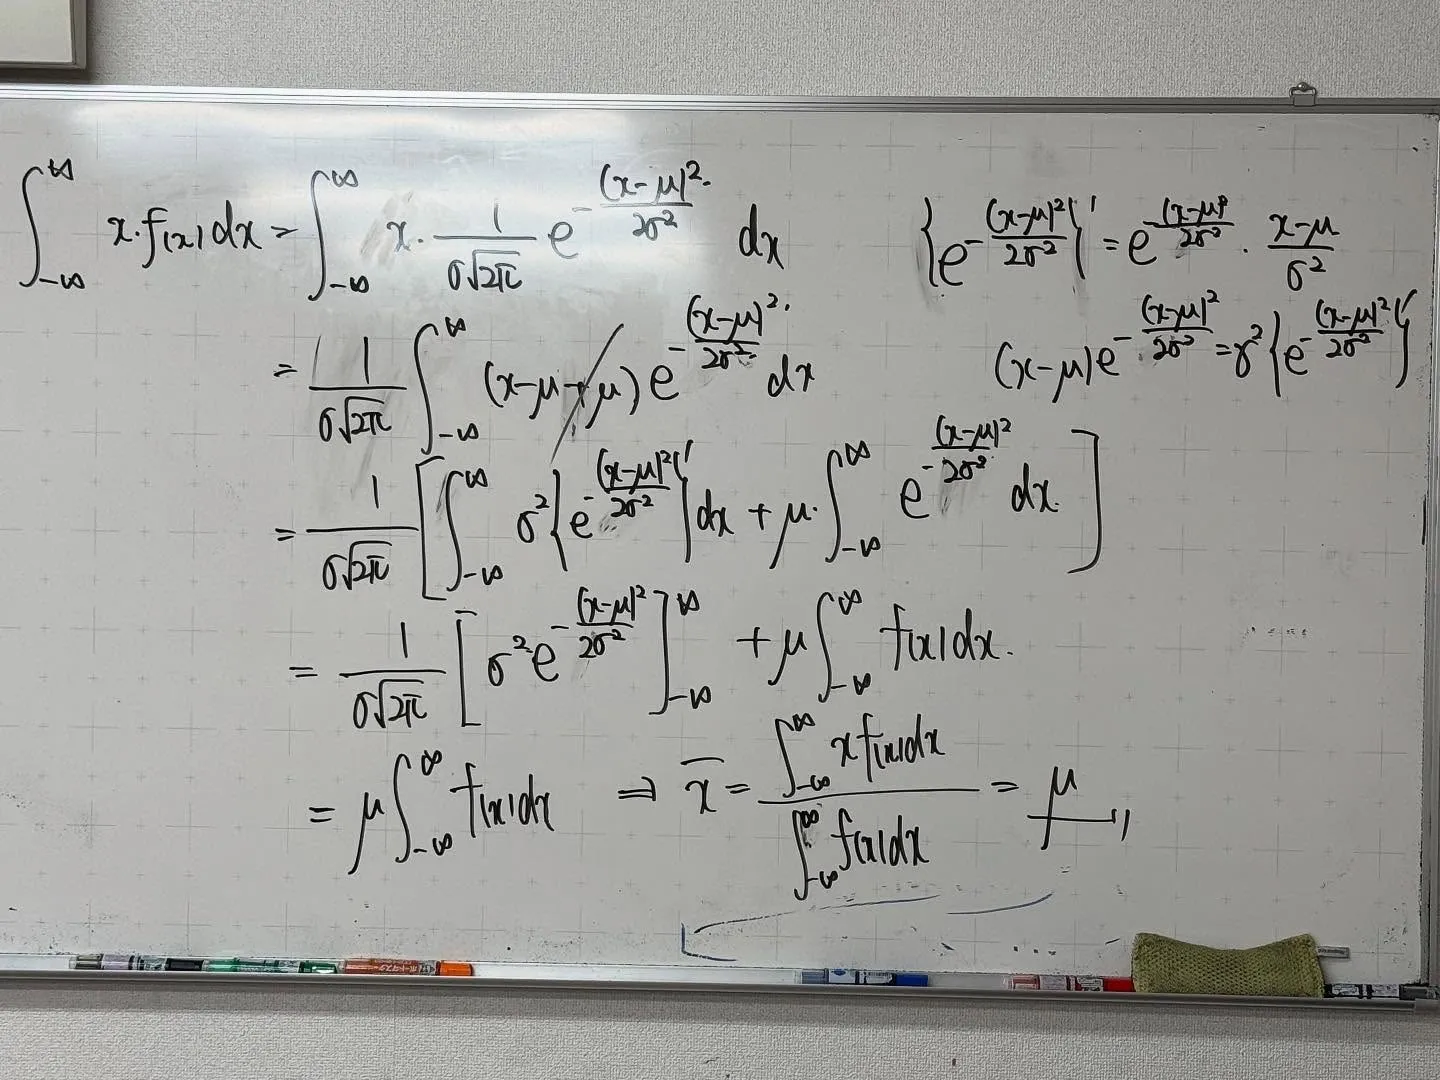 ∫_{-∞}^{∞} x·f(x)dx = ∫_{-∞}^{∞} x· 1/(σ√2π) e^{-(x-μ)²/2σ²} dx
{e^{-(x-μ)²/2σ²}}' = e^{-(x-μ)²/2σ²} · (x-μ)/σ²
= 1/(σ√2π) ∫_{-∞}^{∞} (x-μ+μ) e^{-(x-μ)²/2σ²} dx
(x-μ)e^{-(x-μ)²/2σ²} = σ²{e^{-(x-μ)²/2σ²}}'
= 1/(σ√2π) [∫_{-∞}^{∞} σ²{e^{-(x-μ)²/2σ²}}' dx + μ·∫_{-∞}^{∞} e^{-(x-μ)²/2σ²} dx]
= 1/(σ√2π) [σ²e^{-(x-μ)²/2σ²}]_{-∞}^{∞} + μ∫_{-∞}^{∞} f(x)dx.
= μ∫_{-∞}^{∞} f(x)dx ⇒ x̄ = ∫_{-∞}^{∞} xf(x)dx / ∫_{-∞}^{∞} f(x)dx = μ